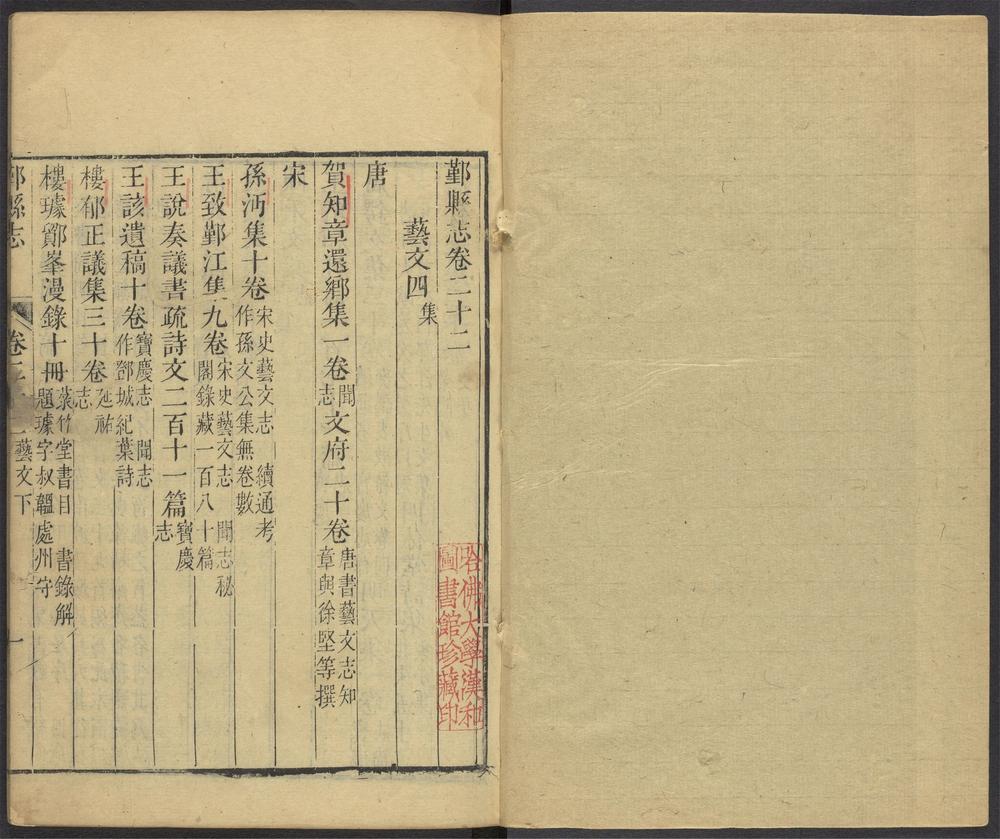 鄞縣志卷二十二
藝文四 集
唐
賀知章還鄉集一卷 聞志 文府二十卷 唐書藝文志知章與徐堅等撰
宋
孫沔集十卷 宋史藝文志 續通考作孫文公集無卷數
王致鄞江集九卷 宋史藝文志 聞志秘閣錄藏一百八十篇
王說奏議書疏詩文二百十一篇 寶慶志
王該遺稿十卷 寶慶志 聞志作鄧城紀葉詩
樓郁正議集三十卷 延祐志
樓璩鄮峯漫錄十冊 菉竹堂書目 書錄解題璩字叔韞處州守
鄞縣志 卷二十二 藝文下 一
哈佛大學漢和圖書館珍藏印